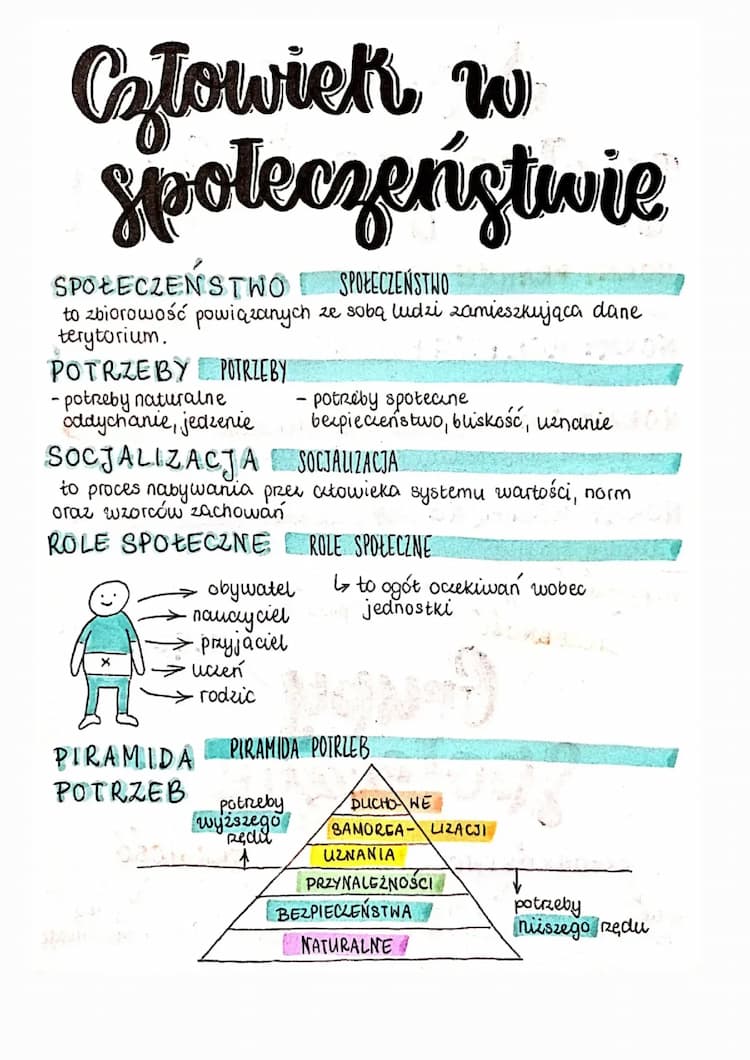 Człowiek w
społeczeństwie
SPOŁECZEŃSTWO SPOŁECZEŃSTWO
to zbiorowość powiązanych ze sobą ludzi zamieszkująca dane
terytorium.
POTRZEBY POTRZEBY
- potrzeby naturalne
oddychanie, jedzenie
- potrzeby społeczne
bezpieczeństwo, bliskość, uznanie
SOCJALIZACJA SOCJALIZACJA
to proces nabywania przez człowieka systemu wartości, norm
oraz wzorców zachowań
ROLE SPOŁECZNE ROLE SPOŁECZNE
obywatel
nauczyciel
przyjaciel
uczeń
rodzic
↳ to ogół oczekiwań wobec
jednostki
PIRAMIDA PIRAMIDA POTRZEB
POTRZEB
potrzeby
wyższego
rzędu
DUCHO-WE
SAMOREA-LIZACJI
UZNANIA
PRZYNALEŻNOŚCI
BEZPIECZEŃSTWA
NATURALNE
potrzeby
niższego rzędu